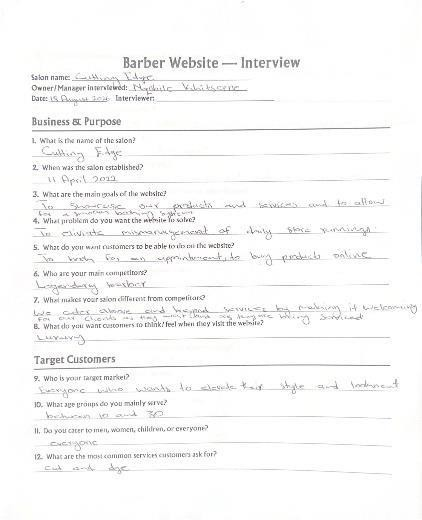 Barber Website — Interview
Salon name: Cutting Edge
Owner/Manager interviewed:
Date: 18 August Interviewer:
Business & Purpose
1. What is the name of the salon?
Cutting Edge
2. When was the salon established?
11 April 2022
3. What are the main goals of the website?
To showcase our products and services and to allow
for a booking system
4. What problem do you want the website to solve?
To mismanagement of daily store runnings
5. What do you want customers to be able to do on the website?
To book for an appointment, to buy products online
6. Who are your main competitors?
Legendary barber
7. What makes your salon different from competitors?
We cater above and beyond services by making it welcoming
for our clients as they are being serviced
8. What do you want customers to think/feel when they visit the website?
Luxury
Target Customers
9. Who is your target market?
Everyone who wants to elevate their style and
10. What age groups do you mainly serve?
between 10 and 30
11. Do you cater to men, women, children, or everyone?
everyone
12. What are the most common services customers ask for?
cut and dye